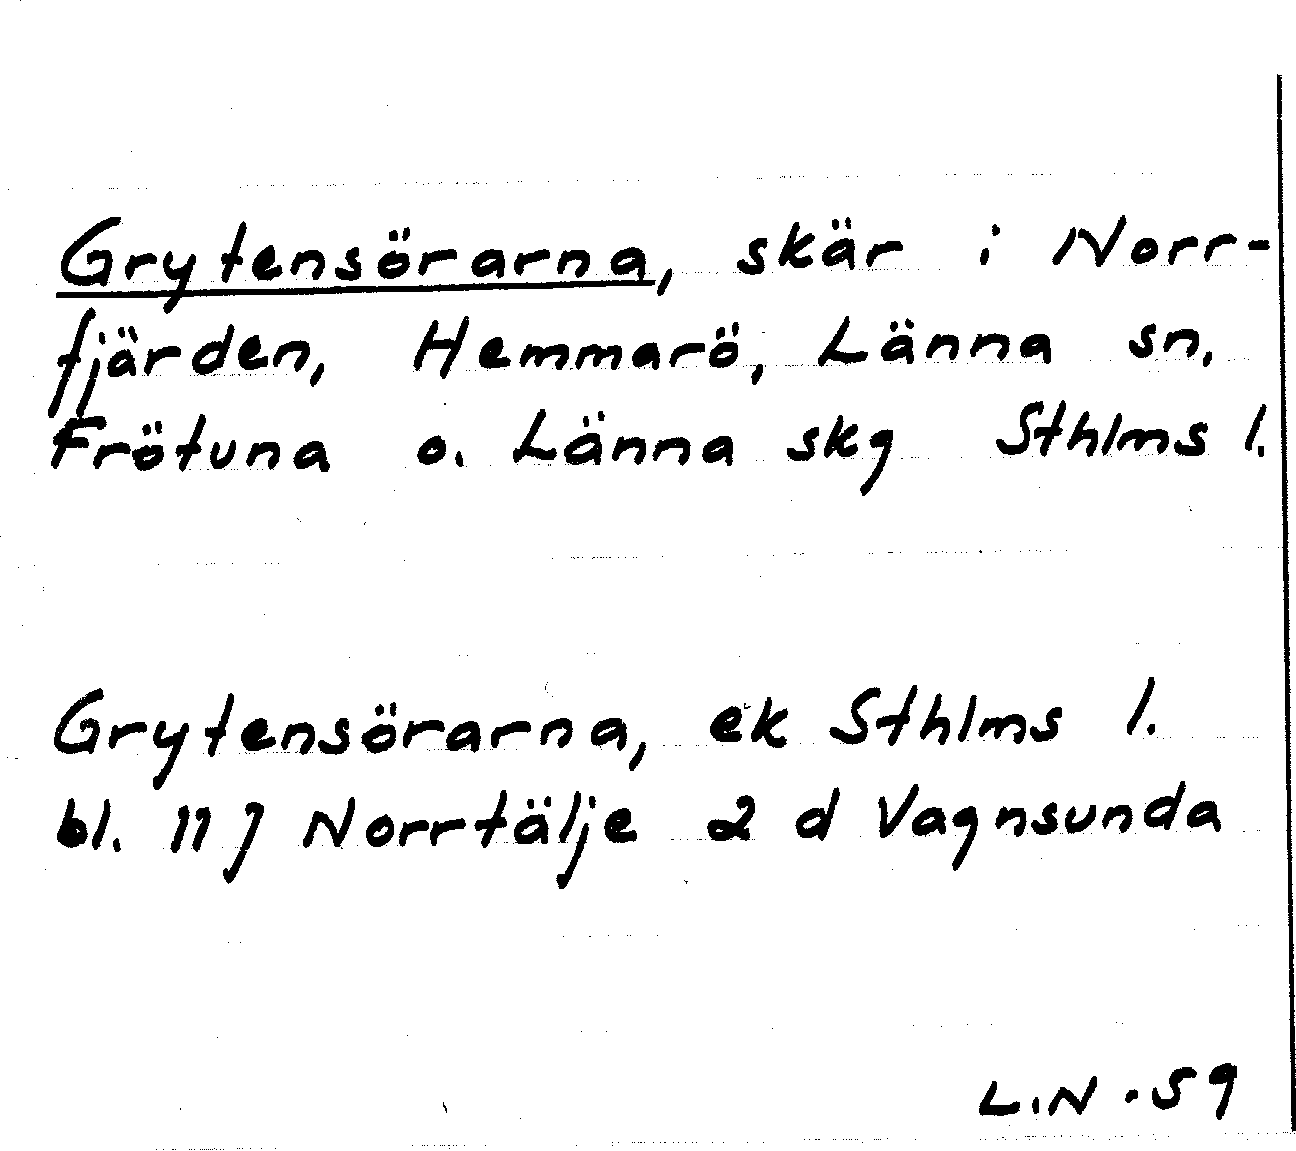 Grytensörarna, skär i Norr-
fjärden, Hemmarö, Länna sn,
Frötuna o. Länna skg Sthlms l.
Grytensörarna, ek Sthlms l.
bl. 11 J Norrtälje 2 d Vagnsunda
L.N. 59